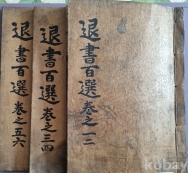 退書百選 卷之一二
退書百選 卷之三四
退書百選 卷之五六
kubay